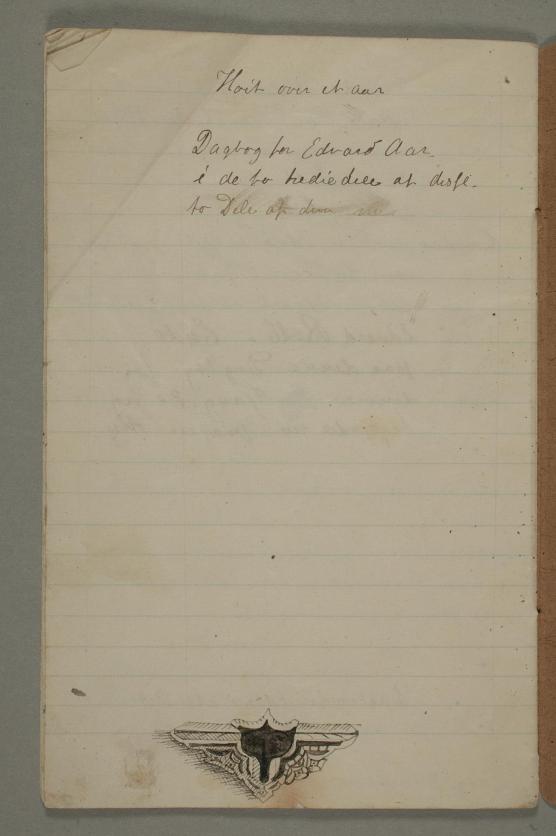 Hoit over et aar
Dagbog for Edvard Aar.
i de to tredie dele af disse.
to Dele af dem